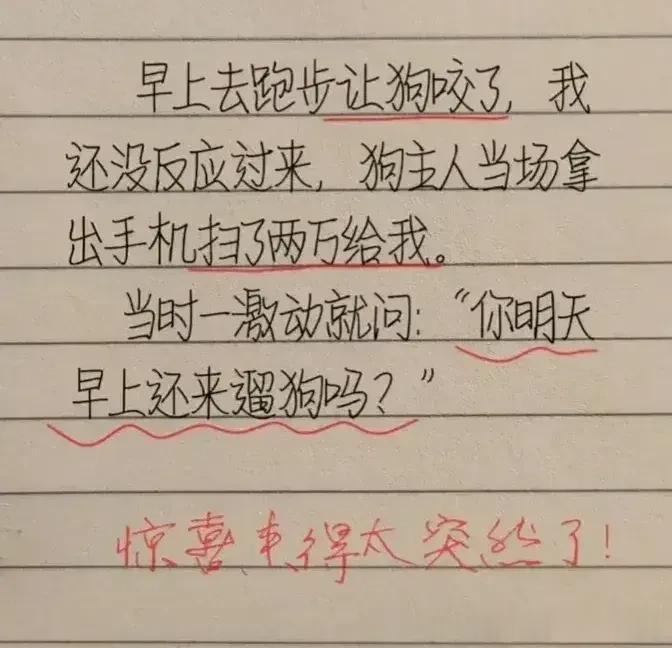 早上去跑步让狗咬了，我
还没反应过来，狗主人当场拿
出手机扫了两万给我。
当时一激动就问：“你明天
早上还来遛狗吗？”
惊喜来得太突然了！